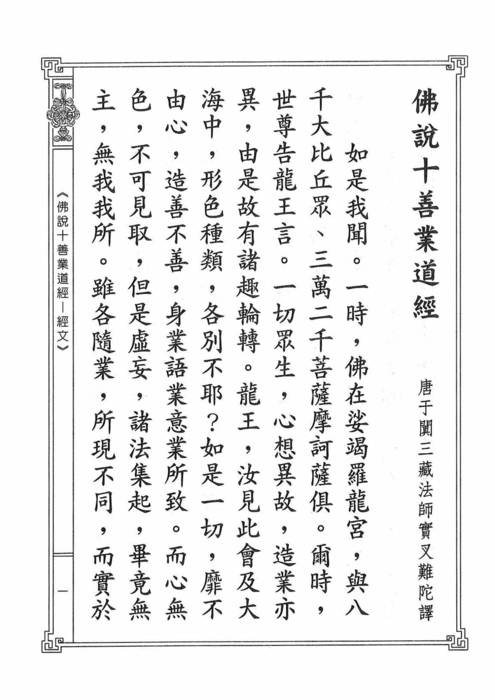 佛說十善業道經
唐于闐三藏法師實叉難陀譯
如是我聞。一時，佛在娑竭羅龍宮，與八
千大比丘眾、三萬二千菩薩摩訶薩俱。爾時，
世尊告龍王言。一切眾生，心想異故，造業亦
異，由是故有諸趣輪轉。龍王，汝見此會及大
海中，形色種類，各別不耶？如是一切，靡不
由心，造善不善，身業語業意業所致。而心無
色，不可見取，但是虛妄，諸法集起，畢竟無
主，無我我所。雖各隨業，所現不同，而實於
《佛說十善業道經—經文》
一